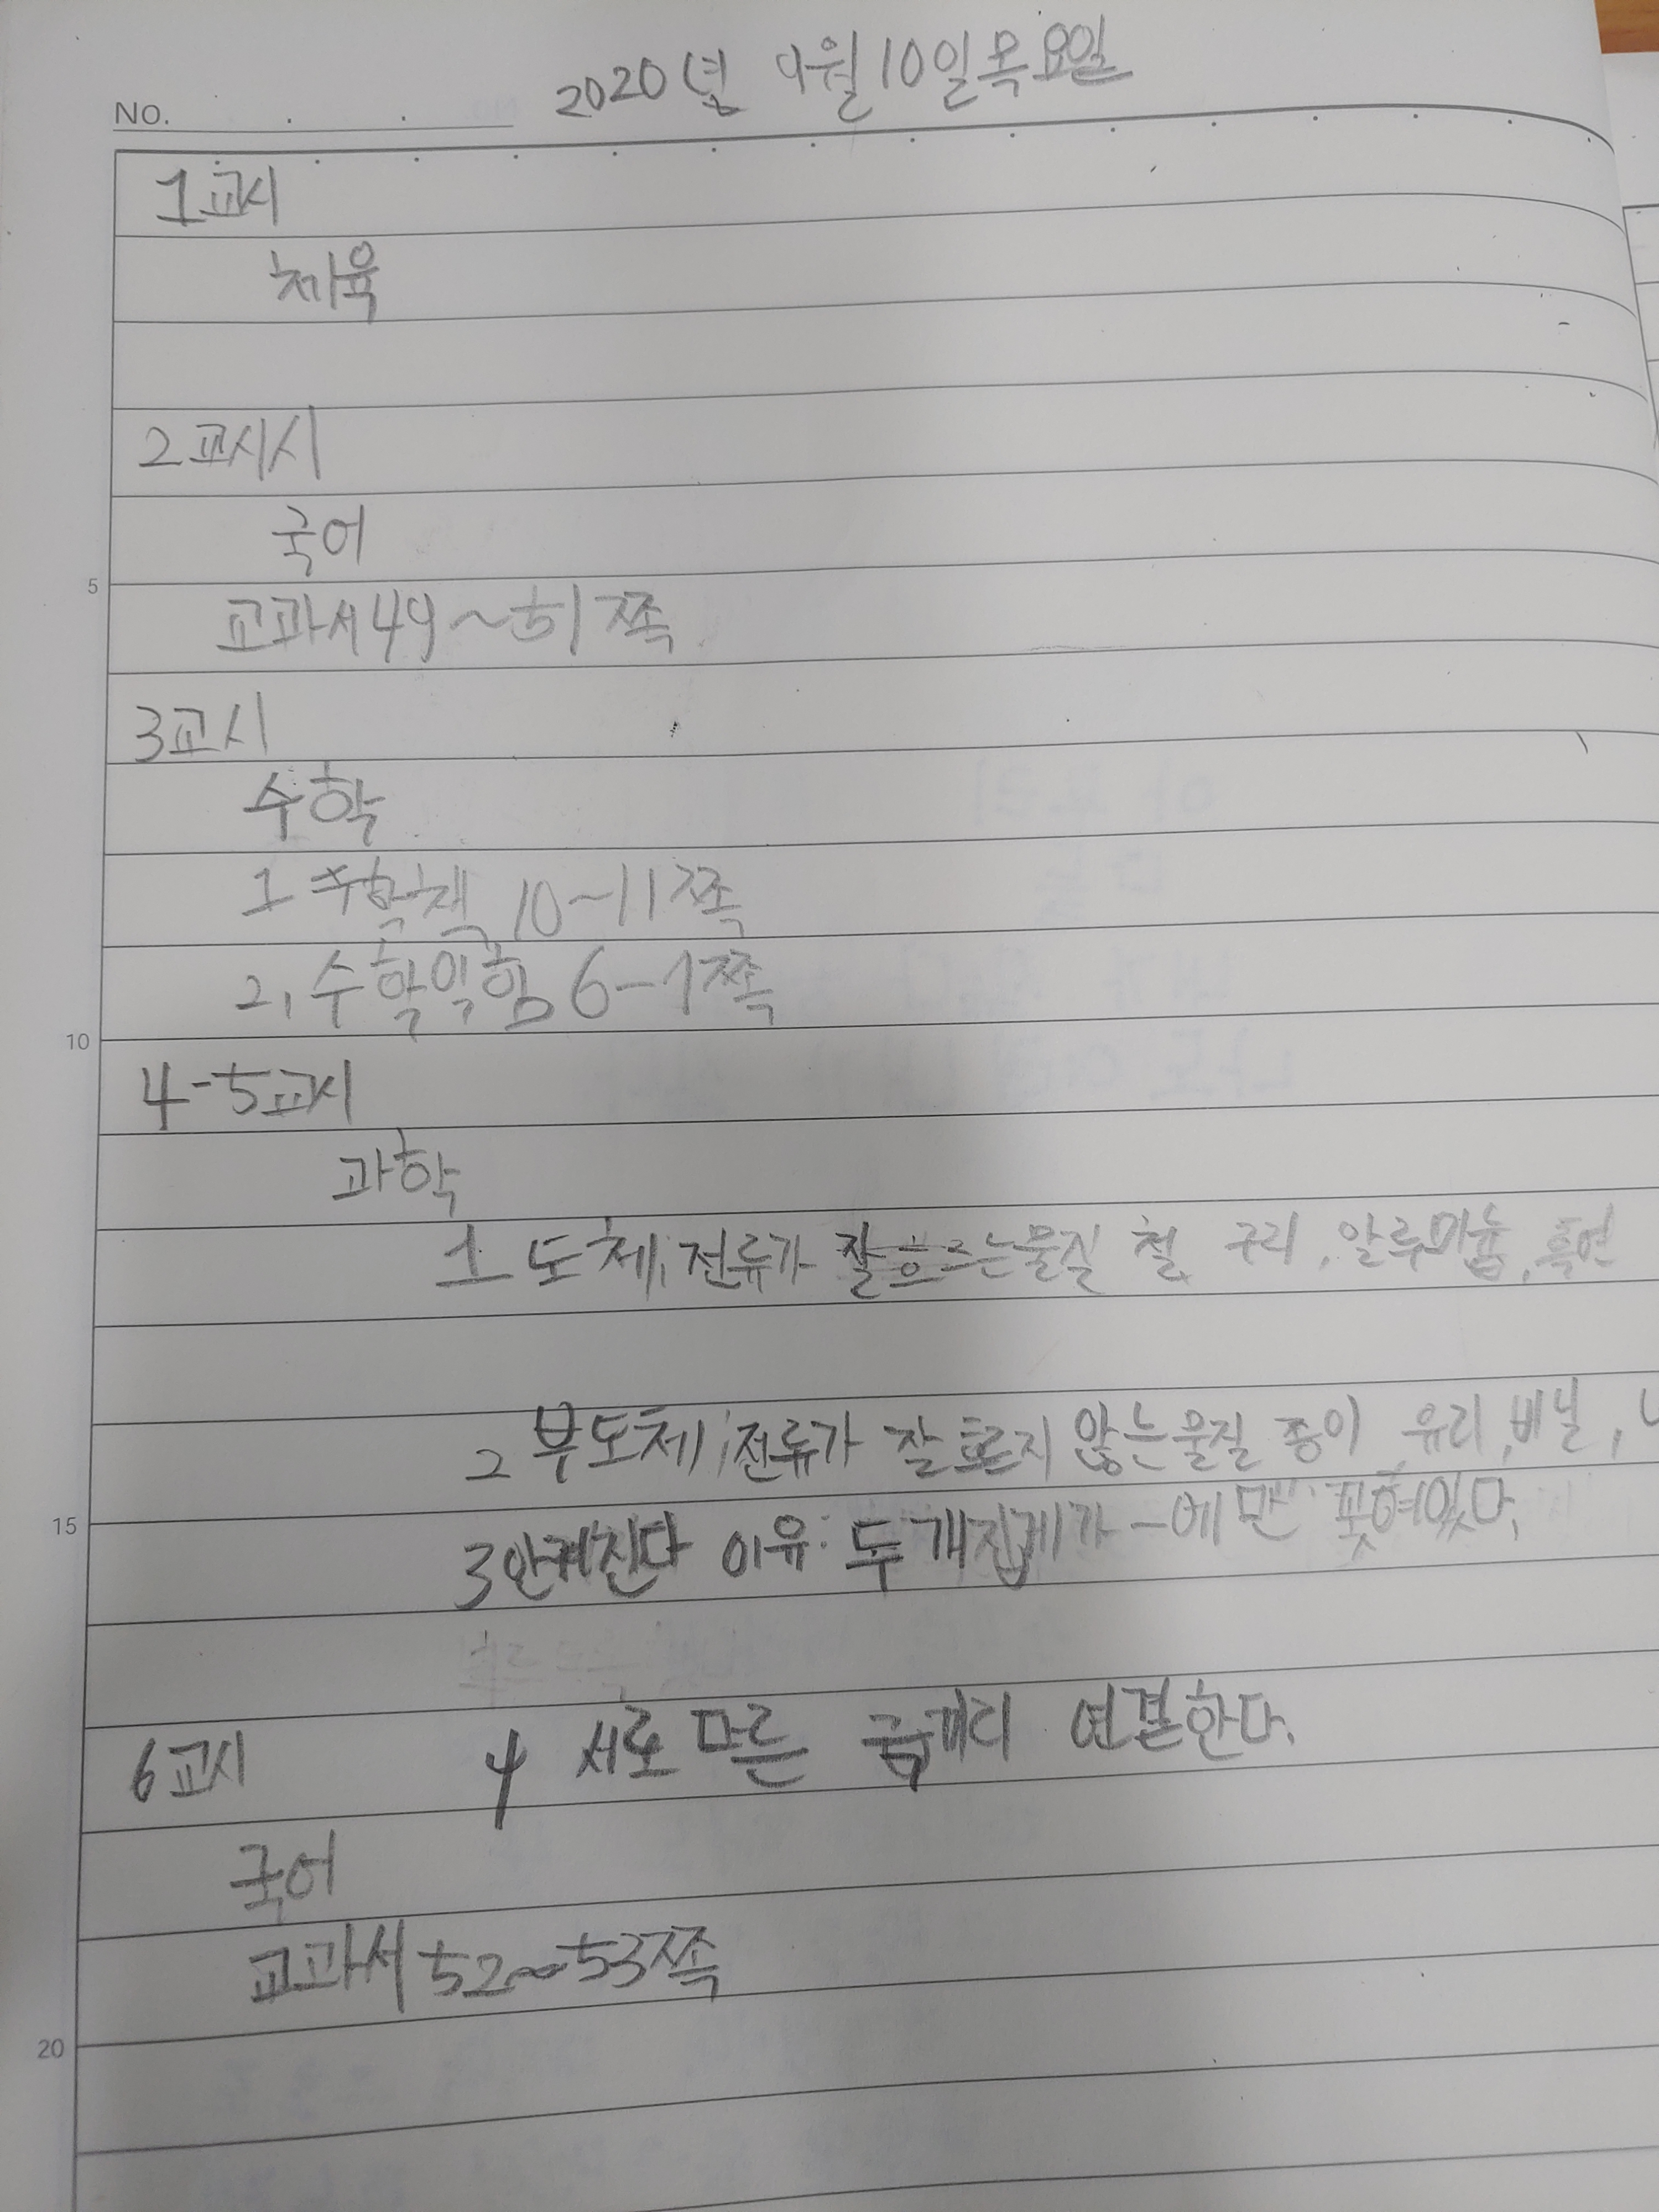 2020년 9월 10일 목요일
NO.
1교시
체육
2교시시
국어
5
교과서 49~51쪽
3교시
수학
1 수학책 10~11쪽
2. 수학익힘 6-7쪽
10
4-5교시
과학
1 도체; 전류가 잘 흐르는 물질 철, 구리, 알루미늄, 흑연
2 부도체; 전류가 잘 흐르지 않는 물질 종이, 유리, 비닐, 나
15
3 안켜진다 이유: 두 개 집게가 -에만 꽂혀있다.
6교시 4 서로 다른 극끼리 연결한다.
국어
교과서 52~53쪽
20